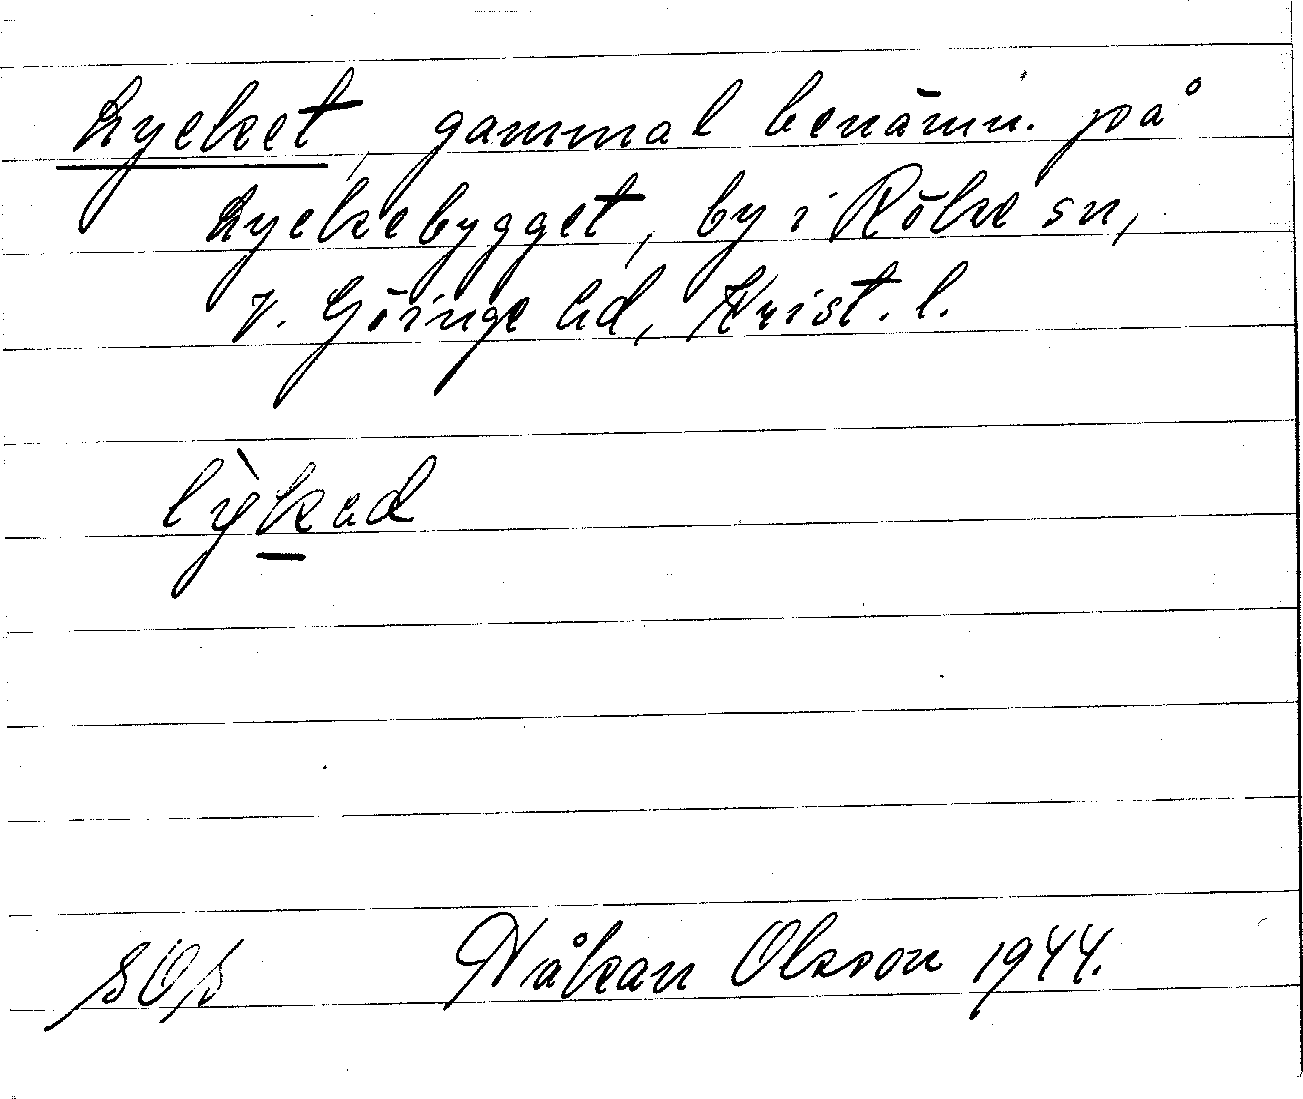 Lycket, gammal benämn. på
Lyckebygget, by i Röke sn,
V. Göinge hd, Krist. l.
lỳked
SOS Håkan Olsson 1944.